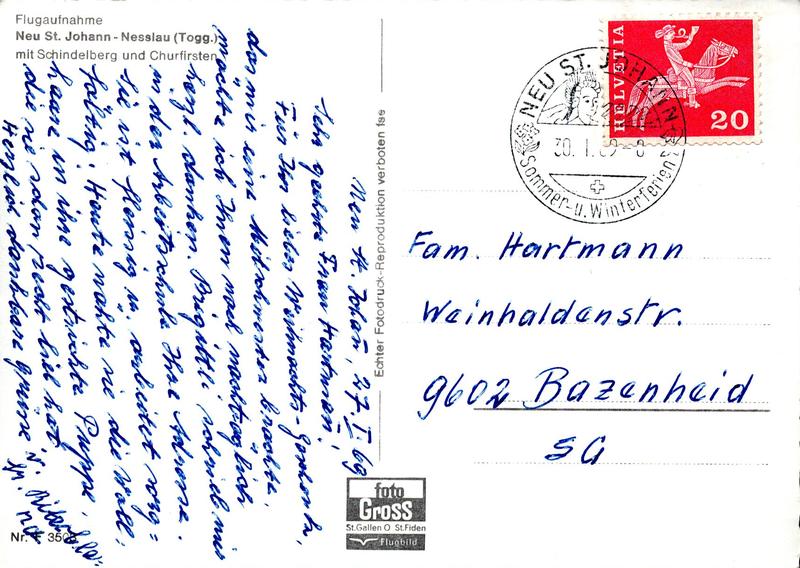 Flugaufnahme
Neu St. Johann - Nesslau (Togg.)
mit Schindelberg und Churfirsten
Neu St Johan, 27. I. 69
Sehr geehrte Frau Hartman,
Für Ihr liebes Weihnachts-Geschenk,
das mir eine Mitschwester brachte,
möchte ich Ihnen noch nachträglich
herzl. danken. Brigittli schrieb mir
in der Arbeitsschule Ihre Adresse.
Sie ist fleissig u. arbeitet sorg=
fältig. Heute nähte sie die Woll-
haare an ihre gestrickte Puppe,
die sie schon recht lieb hat.
Herzlich dankbare Grüsse v.
Sr.
Nr. F 3508
Echter Fotodruck-Reproduktion verboten Iss
foto
GROSS
St.Gallen O St.Fiden
Flugbild
HELVETIA
20
NEU ST. JOHANN
30. I. 69 - 8
Sommer- u. Winterferien
Fam. Hartmann
Weinhaldenstr.
9602 Bazenheid
SG